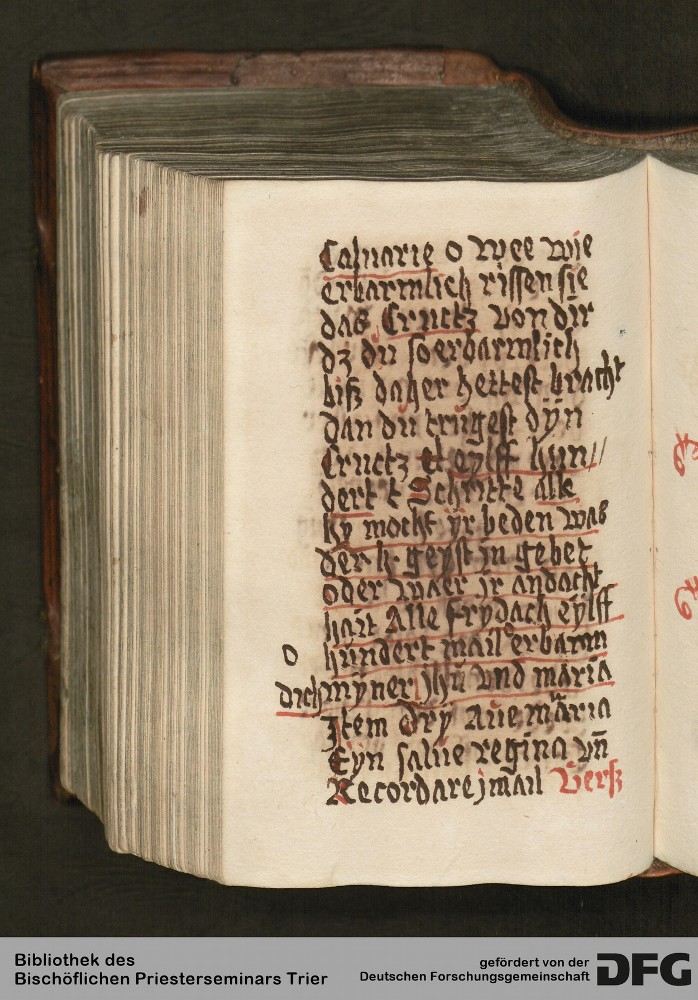 Caluarie o wee wie
erbarmlich rissen sie
das Cructz von dir
dz du so erbarmlich
biß daher hettest bracht
dan du trugest dyn
Cructz et eylff hun//
dert t Schritte alle
hy mocht yr beden was
der h geyst jn gebet
oder waer jr andacht
hait Alle frydach eylff
hundert mail erbarm
o
dich myner jhu und maria
Jtem dry Aue maria
Eyn salue regina vn̄
Recordare j mail Verß
Bibliothek des
Bischöflichen Priesterseminars Trier
gefördert von der
Deutschen Forschungsgemeinschaft DFG